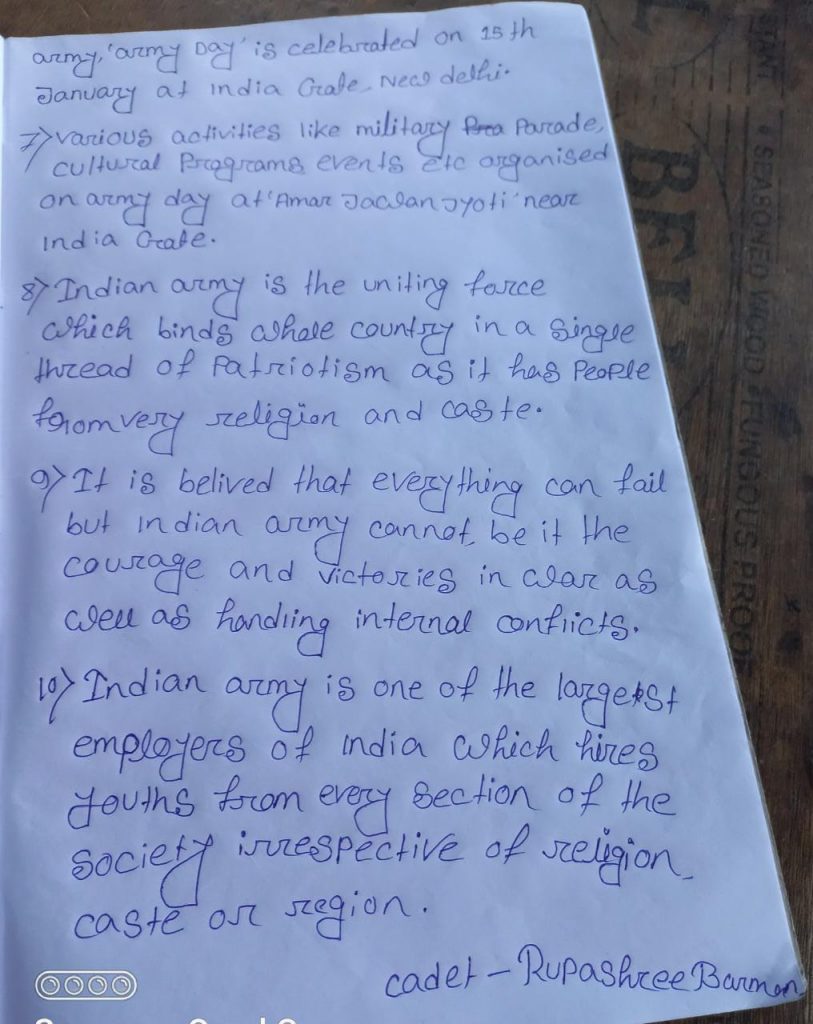 army, 'army Day' is celebrated on 15th
January at india Gate, New delhi.
7) various activities like military Parade,
cultural Programs events etc organised
on army day at 'Amar Jawan Jyoti' near
india Gate.
8) Indian army is the uniting force
which binds whole country in a single
thread of Patriotism as it has People
from very religion and caste.
9) It is belived that everything can fail
but indian army cannot, be it the
courage and victories in war as
well as handling internal conflicts.
10) Indian army is one of the largest
employers of india which hires
youths from every section of the
society irrespective of religion,
caste or region.
cadet - Rupashree Barman
STANT
SEASONED WOOD FUNGOUS PROOF